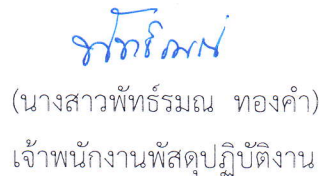 (นางสาวพัทธ์รมณ ทองคำ)
เจ้าพนักงานพัสดุปฏิบัติงาน